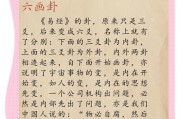 六画卦
《易经》的卦，原来只是三
爻，后来变成六爻，名称上就有
了分别：下面的三爻卦为内卦，
上面的三爻卦为外卦，内外两卦
相连起来，由下面开始画，亦
说明了宇宙事物的变，是内在开
始变。如人的变，是内在的思想
先变，一个公司机构出了问题，必
然是内部先出了问题，亦是我们
中国人说的：“物必自腐，然后